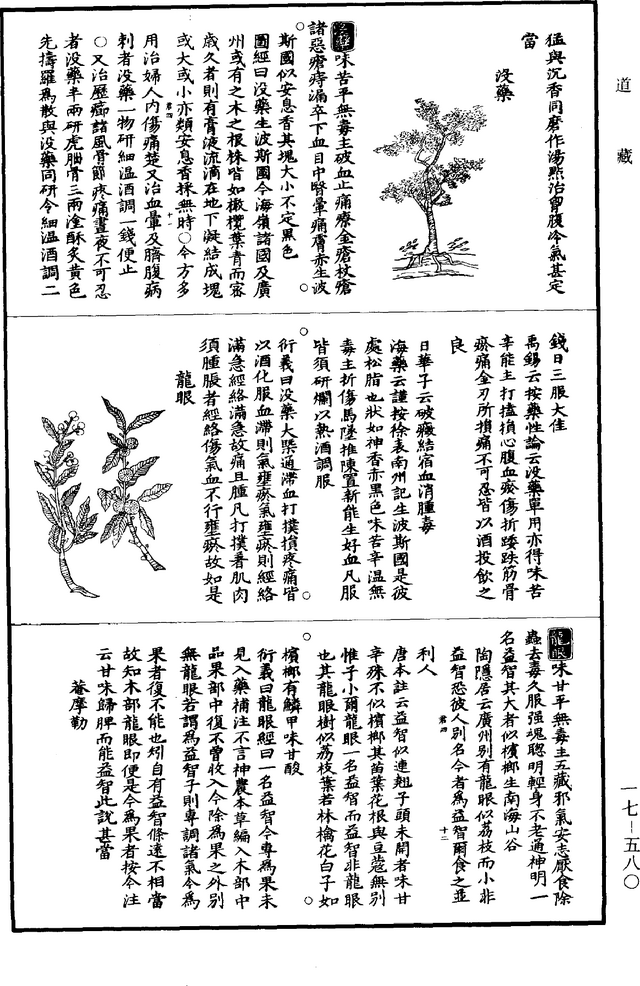 道藏
猛與沉香同磨作湯點治胷腹冷氣甚定
當
没藥
没藥味苦平無毒主破血止痛療金瘡杖瘡
諸惡瘡痔漏卒下血目中瞖暈痛膚赤生波
斯國似安息香其塊大小不定黑色
圖經曰没藥生波斯國今海嶺諸國及廣
州或有之木之根株皆如橄欖葉青而宻
歲久者則有膏液流滴在地下凝結成塊
或大或小亦類安息香採無時○今方多
用治婦人内傷痛楚又治血暈及臍腹㽲
刺者没藥一物研細温酒調一錢便止
○又治歷節諸風骨節疼痛晝夜不可忍
者没藥半兩研虎脛骨三兩塗酥炙黄色
先擣羅爲散與没藥同研令細温酒調二
錢日三服大佳
禹錫云按藥性論云没藥單用亦得味苦
辛能主打𢷬損心腹血瘀傷折踒跌筋骨
瘀痛金刃所損痛不可忍皆以酒投飲之
良
日華子云破癥結宿血消腫毒
海藥云謹按徐表南州記生波斯國是彼
處松脂也狀如神香赤黑色味苦辛温無
毒主折傷馬墜推陳置新能生好血凡服
皆須研爛以熱酒調服
衍義曰没藥大槩通滯血打撲損疼痛皆
以酒化服血滯則氣壅瘀氣壅瘀則經絡
滿急經絡滿急故痛且腫凡打撲著肌肉
須腫脹者經絡傷氣血不行壅瘀故如是
龍眼
龍眼味甘平無毒主五藏邪氣安志厭食除
蟲去毒久服强魂聰明輕身不老通神明一
名益智其大者似檳榔生南海山谷
陶隱居云廣州别有龍眼似荔枝而小非
益智恐彼人别名今者爲益智爾食之並
利人
唐本註云益智似連翹子頭未開者味甘
辛殊不似檳榔其苗葉花根與豆蔻無别
惟子小爾龍眼一名益智而益智非龍眼
也其龍眼樹似荔枝葉若林檎花白子如
檳榔有鱗甲味甘酸
衍義曰龍眼經曰一名益智今專爲果未
見入藥補注不言神農本草編入木部中
品果部中復不曾收入今除爲果之外别
無龍眼若謂爲益智子則專調諸氣今爲
果者復不能也矧自有益智條遠不相當
故知木部龍眼即便是今爲果者按今注
云甘味歸脾而能益智此説甚當
菴摩勒
一七—五八〇